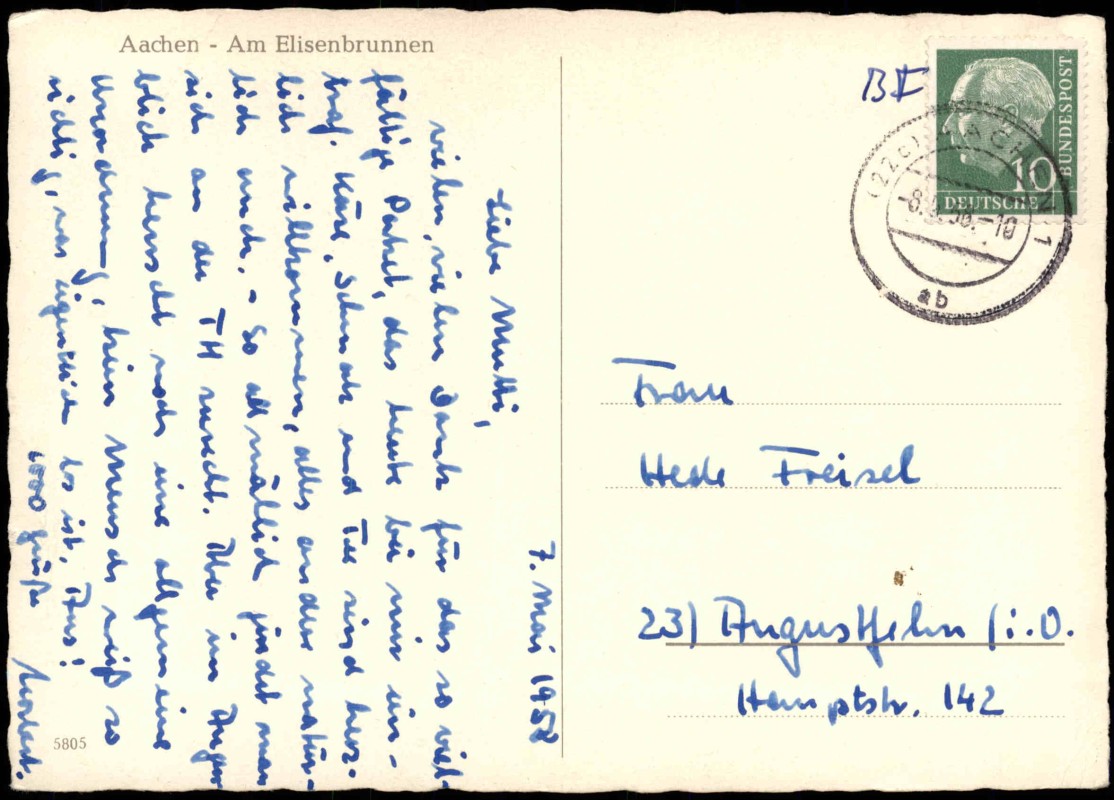 Aachen - Am Elisenbrunnen
7. Mai 1958
Liebe Mutti,
vielen, vielen Dank für das so viel-
fältige Paket, das heute bei mir ein-
traf. Käse, Schmalz und Tee sind herz-
lich willkommen, alles andere natür-
lich auch. - So allmählich findet man
sich an der TH zurecht. Aber im Augen
blick herrscht noch eine allgemeine
Unordnung, kein Mensch weiß so
richtig, was eigentlich los ist. Aus!
1000 Grüße
Norbert.
5805
BF
10
DEUTSCHE
BUNDESPOST
(22c) AACHEN 1
-8.5.58.-10
ab
Frau
Hede Freisel
23) Augustfehn (i.O.
Hauptstr. 142